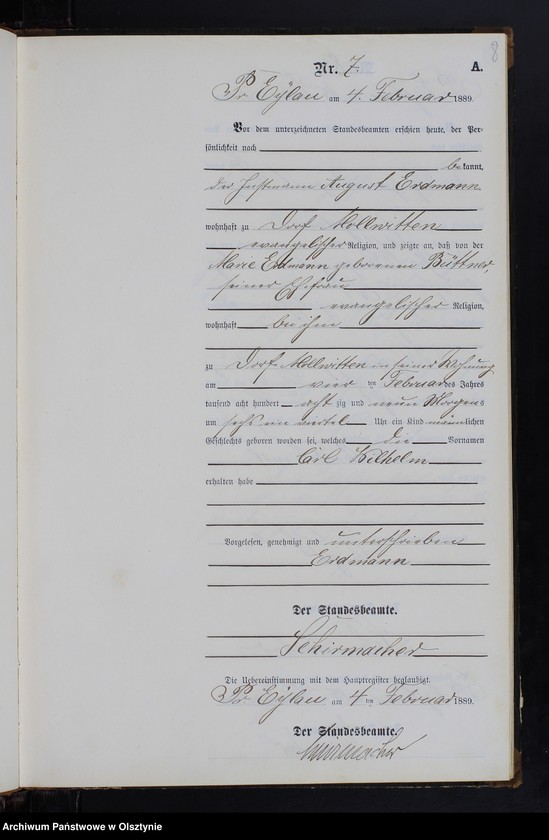 8
Nr. 7. A.
Pr. Eylau am 4. Februar 1889.
Vor dem unterzeichneten Standesbeamten erschien heute, der Per-
sönlichkeit nach
bekannt,
der Instmann August Erdmann
wohnhaft zu Dorf Mollwitten
evangelischer Religion, und zeigte an, daß von der
Marie Erdmann geborenen Büttner,
seiner Ehefrau
evangelischer Religion,
wohnhaft bei ihm
zu Dorf Mollwitten in seiner Wohnung
am vier ten Februar des Jahres
tausend acht hundert acht zig und neun Morgens
um sechs ein viertel Uhr ein Kind männlichen
Geschlechts geboren worden sei, welches die Vornamen
Carl Wilhelm
erhalten habe
Vorgelesen, genehmigt und unterschrieben
Erdmann
Der Standesbeamte.
Schirmacher
Die Uebereinstimmung mit dem Hauptregister beglaubigt.
Pr. Eylau am 4 ten Februar 1889.
Der Standesbeamte.
Schirmacher
Archiwum Państwowe w Olsztynie